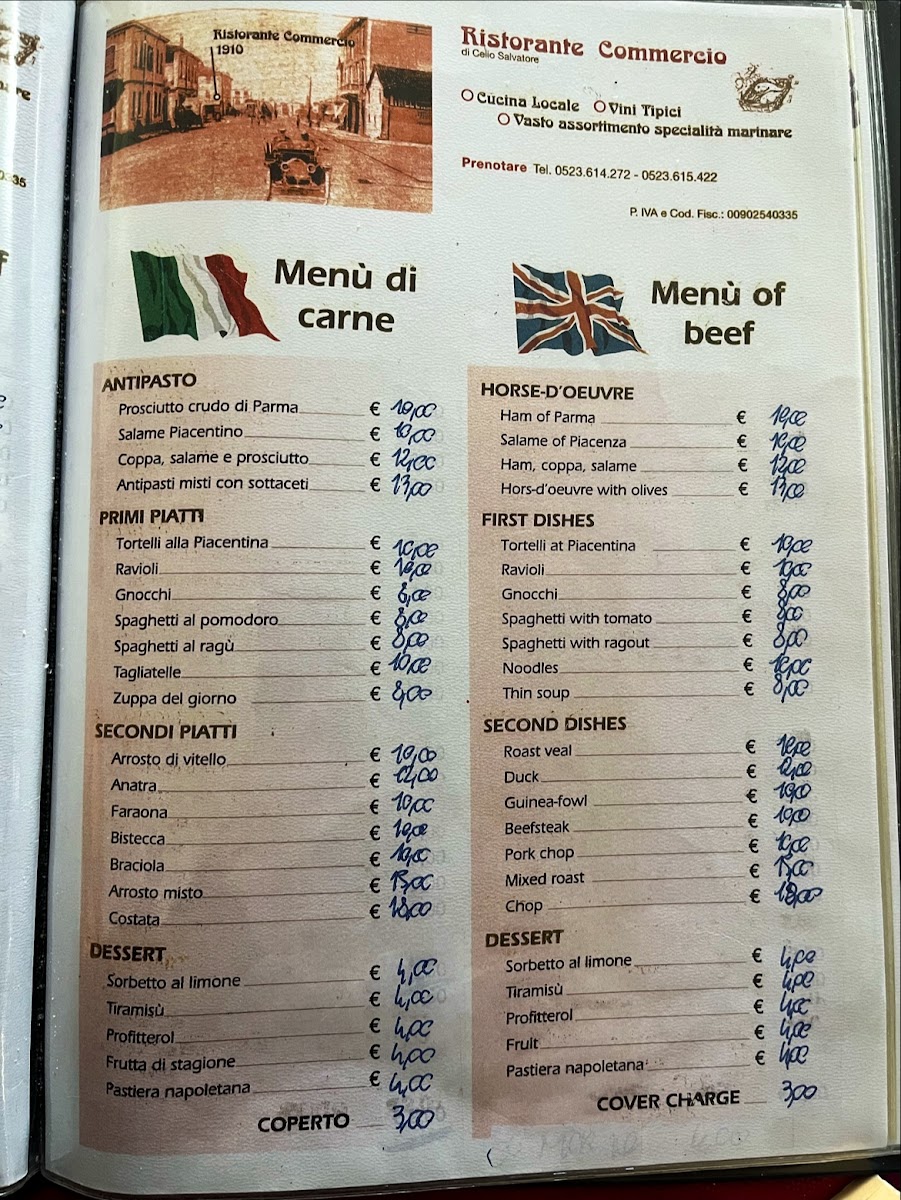 Ristorante Commercio
1910
Ristorante Commercio
di Celio Salvatore
Cucina Locale Vini Tipici
Vasto assortimento specialità marinare
Prenotare Tel. 0523.614.272 - 0523.615.422
P. IVA e Cod. Fisc.: 00902540335
Menù di
carne
ANTIPASTO
Prosciutto crudo di Parma € 10,00
Salame Piacentino € 10,00
Coppa, salame e prosciutto € 12,00
Antipasti misti con sottaceti € 13,00
PRIMI PIATTI
Tortelli alla Piacentina € 10,00
Ravioli € 10,00
Gnocchi € 8,00
Spaghetti al pomodoro € 8,00
Spaghetti al ragù € 8,00
Tagliatelle € 10,00
Zuppa del giorno € 8,00
SECONDI PIATTI
Arrosto di vitello € 10,00
Anatra € 12,00
Faraona € 10,00
Bistecca € 10,00
Braciola € 10,00
Arrosto misto € 15,00
Costata € 18,00
DESSERT
Sorbetto al limone € 4,00
Tiramisù € 4,00
Profitterol € 4,00
Frutta di stagione € 4,00
Pastiera napoletana € 4,00
COPERTO 3,00
Menù of
beef
HORSE-D'OEUVRE
Ham of Parma € 10,00
Salame of Piacenza € 10,00
Ham, coppa, salame € 12,00
Hors-d'oeuvre with olives € 13,00
FIRST DISHES
Tortelli at Piacentina € 10,00
Ravioli € 10,00
Gnocchi € 8,00
Spaghetti with tomato € 8,00
Spaghetti with ragout € 8,00
Noodles € 10,00
Thin soup € 8,00
SECOND DISHES
Roast veal € 10,00
Duck € 12,00
Guinea-fowl € 10,00
Beefsteak € 10,00
Pork chop € 10,00
Mixed roast € 15,00
Chop € 18,00
DESSERT
Sorbetto al limone € 4,00
Tiramisù € 4,00
Profitterol € 4,00
Fruit € 4,00
Pastiera napoletana € 4,00
COVER CHARGE 3,00